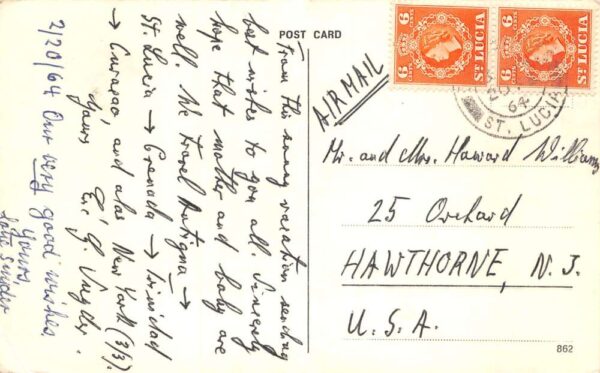 POST CARD
AIR MAIL
6 CENTS 6
ST. LUCIA
6 CENTS 6
ST. LUCIA
64
ST. LUCIA
From this sunny vacation sending
best wishes to you all. Sincerely
hope that mother and baby are
well. We travel Antigua →
St. Lucia → Grenada → Trinidad
→ Curaçao, and alas New York (3/3).
Yours
2/20/64 Our very good wishes
Yours,
Mr. and Mrs. Howard Williams
25 Orchard
HAWTHORNE, N. J.
U. S. A.
862